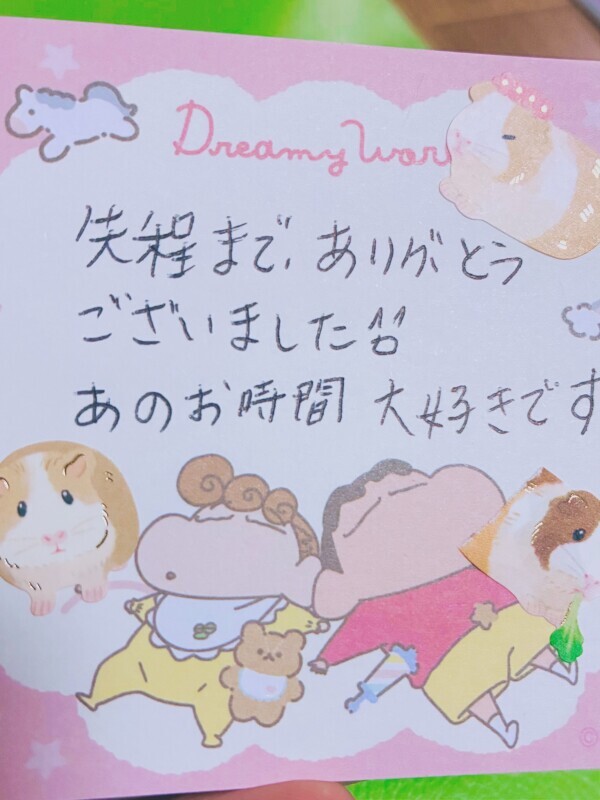 Dreamy Wor
先程まで、ありがとう
ございました
あのお時間 大好きです
©